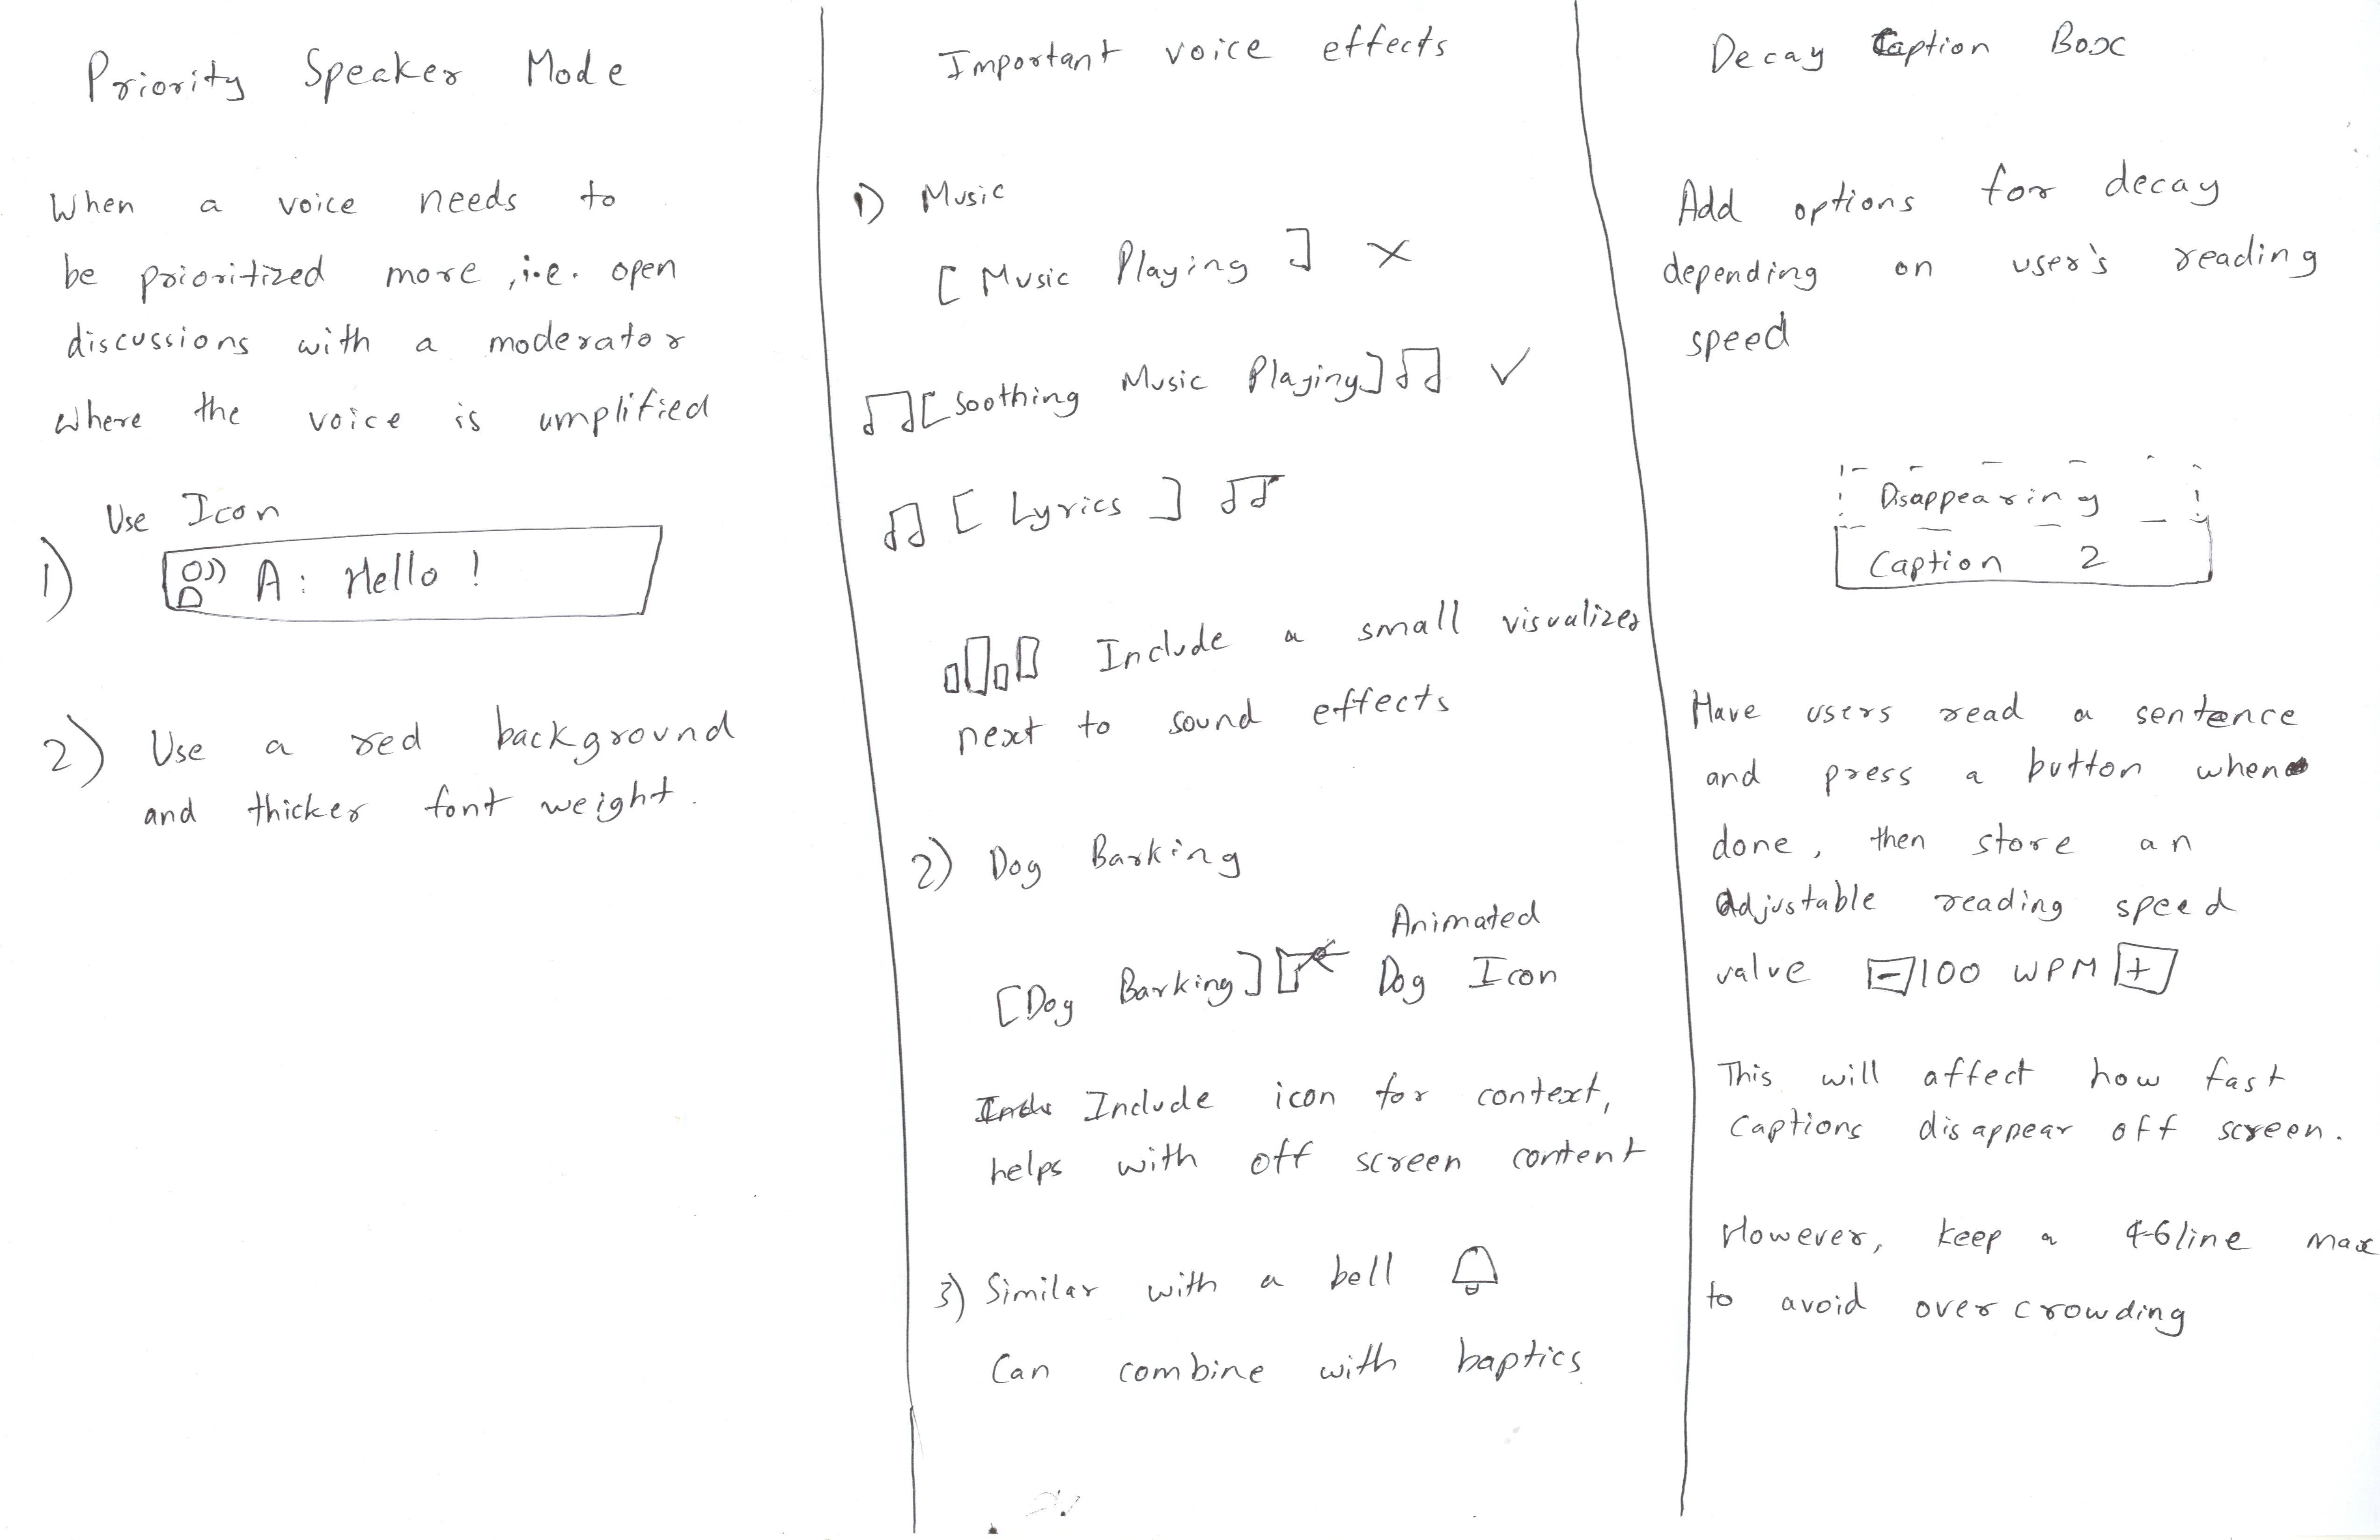 Priority Speaker Mode
When a voice needs to
be prioritized more, i.e. open
discussions with a moderator
where the voice is amplified
Use Icon
1) A: Hello !
2) Use a red background
and thicker font weight.
Important voice effects
1) Music
[ Music Playing ] ×
♫[Soothing Music Playing]♫ ✓
♫ [ Lyrics ] ♫
Include a small visualizer
next to sound effects
2) Dog Barking
Animated
[Dog Barking] Dog Icon
Include icon for context,
helps with off screen content
3) Similar with a bell
Can combine with haptics
Decay Caption Box
Add options for decay
depending on user's reading
speed
Disappearing
Caption 2
Have users read a sentence
and press a button when
done, then store an
adjustable reading speed
value [-] 100 WPM [+]
This will affect how fast
captions disappear off screen.
However, keep a 4-6 line max
to avoid overcrowding